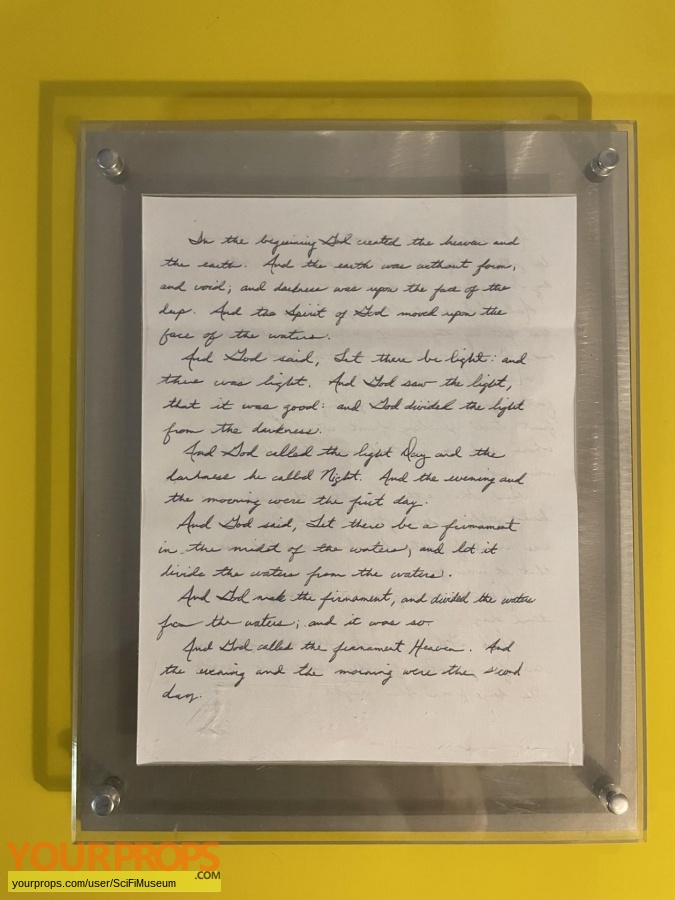 In the beginning God created the heaven and
the earth. And the earth was without form,
and void; and darkness was upon the face of the
deep. And the Spirit of God moved upon the
face of the waters.
And God said, Let there be light: and
there was light. And God saw the light,
that it was good: and God divided the light
from the darkness.
And God called the light Day and the
darkness he called Night. And the evening and
the morning were the first day.
And God said, Let there be a firmament
in the midst of the waters, and let it
divide the waters from the waters.
And God made the firmament, and divided the waters
from the waters; and it was so.
And God called the firmament Heaven. And
the evening and the morning were the second
day.
YOURPROPS
.COM
yourprops.com/user/SciFiMuseum